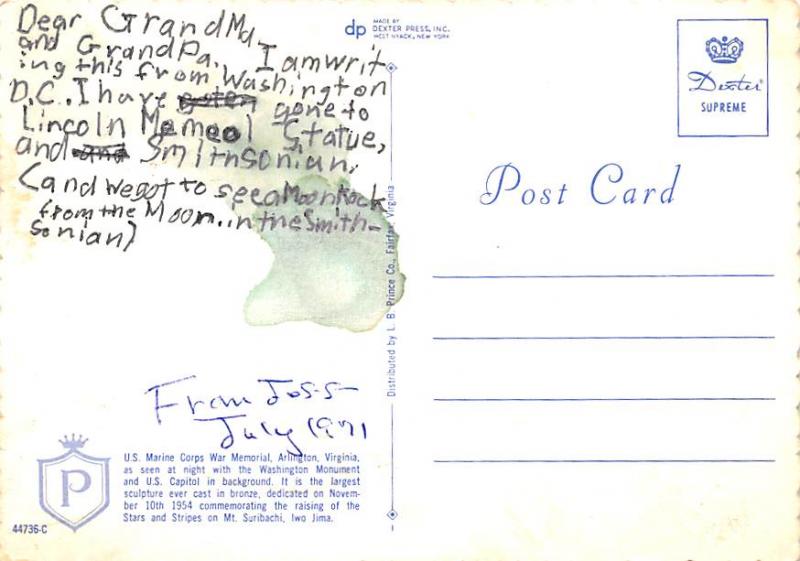 Dear GrandMa
and GrandPa. I am writ
ing this from Washington
D.C. I have gone to
Lincoln Memeol Statue,
and Smithsonian.
(and we got to see a Moon Rock
from the Moon.. in the Smith-
sonian)
From Joss
July 1971
P
U.S. Marine Corps War Memorial, Arlington, Virginia,
as seen at night with the Washington Monument
and U.S. Capitol in background. It is the largest
sculpture ever cast in bronze, dedicated on Novem-
ber 10th 1954 commemorating the raising of the
Stars and Stripes on Mt. Suribachi, Iwo Jima.
44736-C
dp
MADE BY
DEXTER PRESS, INC.
WEST NYACK, NEW YORK
Distributed by L. B. Prince Co., Fairfax, Virginia
Dexter®
SUPREME
Post Card